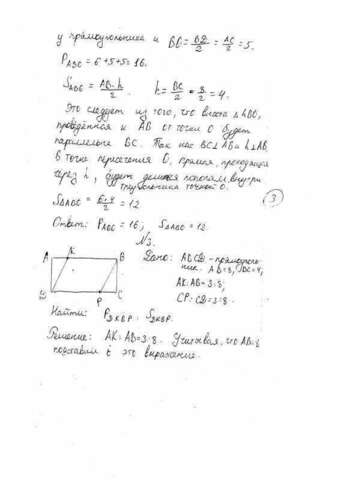 у прямоугольника и BO = BD/2 = AC/2 = 5.
P ABO = 6+5+5 = 16.
S ABO = AB·h/2 . h = BC/2 = 8/2 = 4.
Это следует из того, что высота △ABO,
проведённая к AB от точки O будет
параллельна BC. Так как BC⊥AB и h⊥AB,
в точке пересечения O, прямая, проходящая
через h, будет делится пополам внутри
прямоугольника точкой O.
3
S△ABO = 6·4/2 = 12
Ответ: P ABO = 16; S△ABO = 12.
N3.
A K B
P C
Дано: ABCD – прямоуголь-
ник. AB=8, BC=4,
AK:AB=3:8.
CP:CD=3:8
Найти: P DKBP. S DKBP.
Решение: AK:AB=3:8. Учитывая, что AB=8
подставим в это выражение.